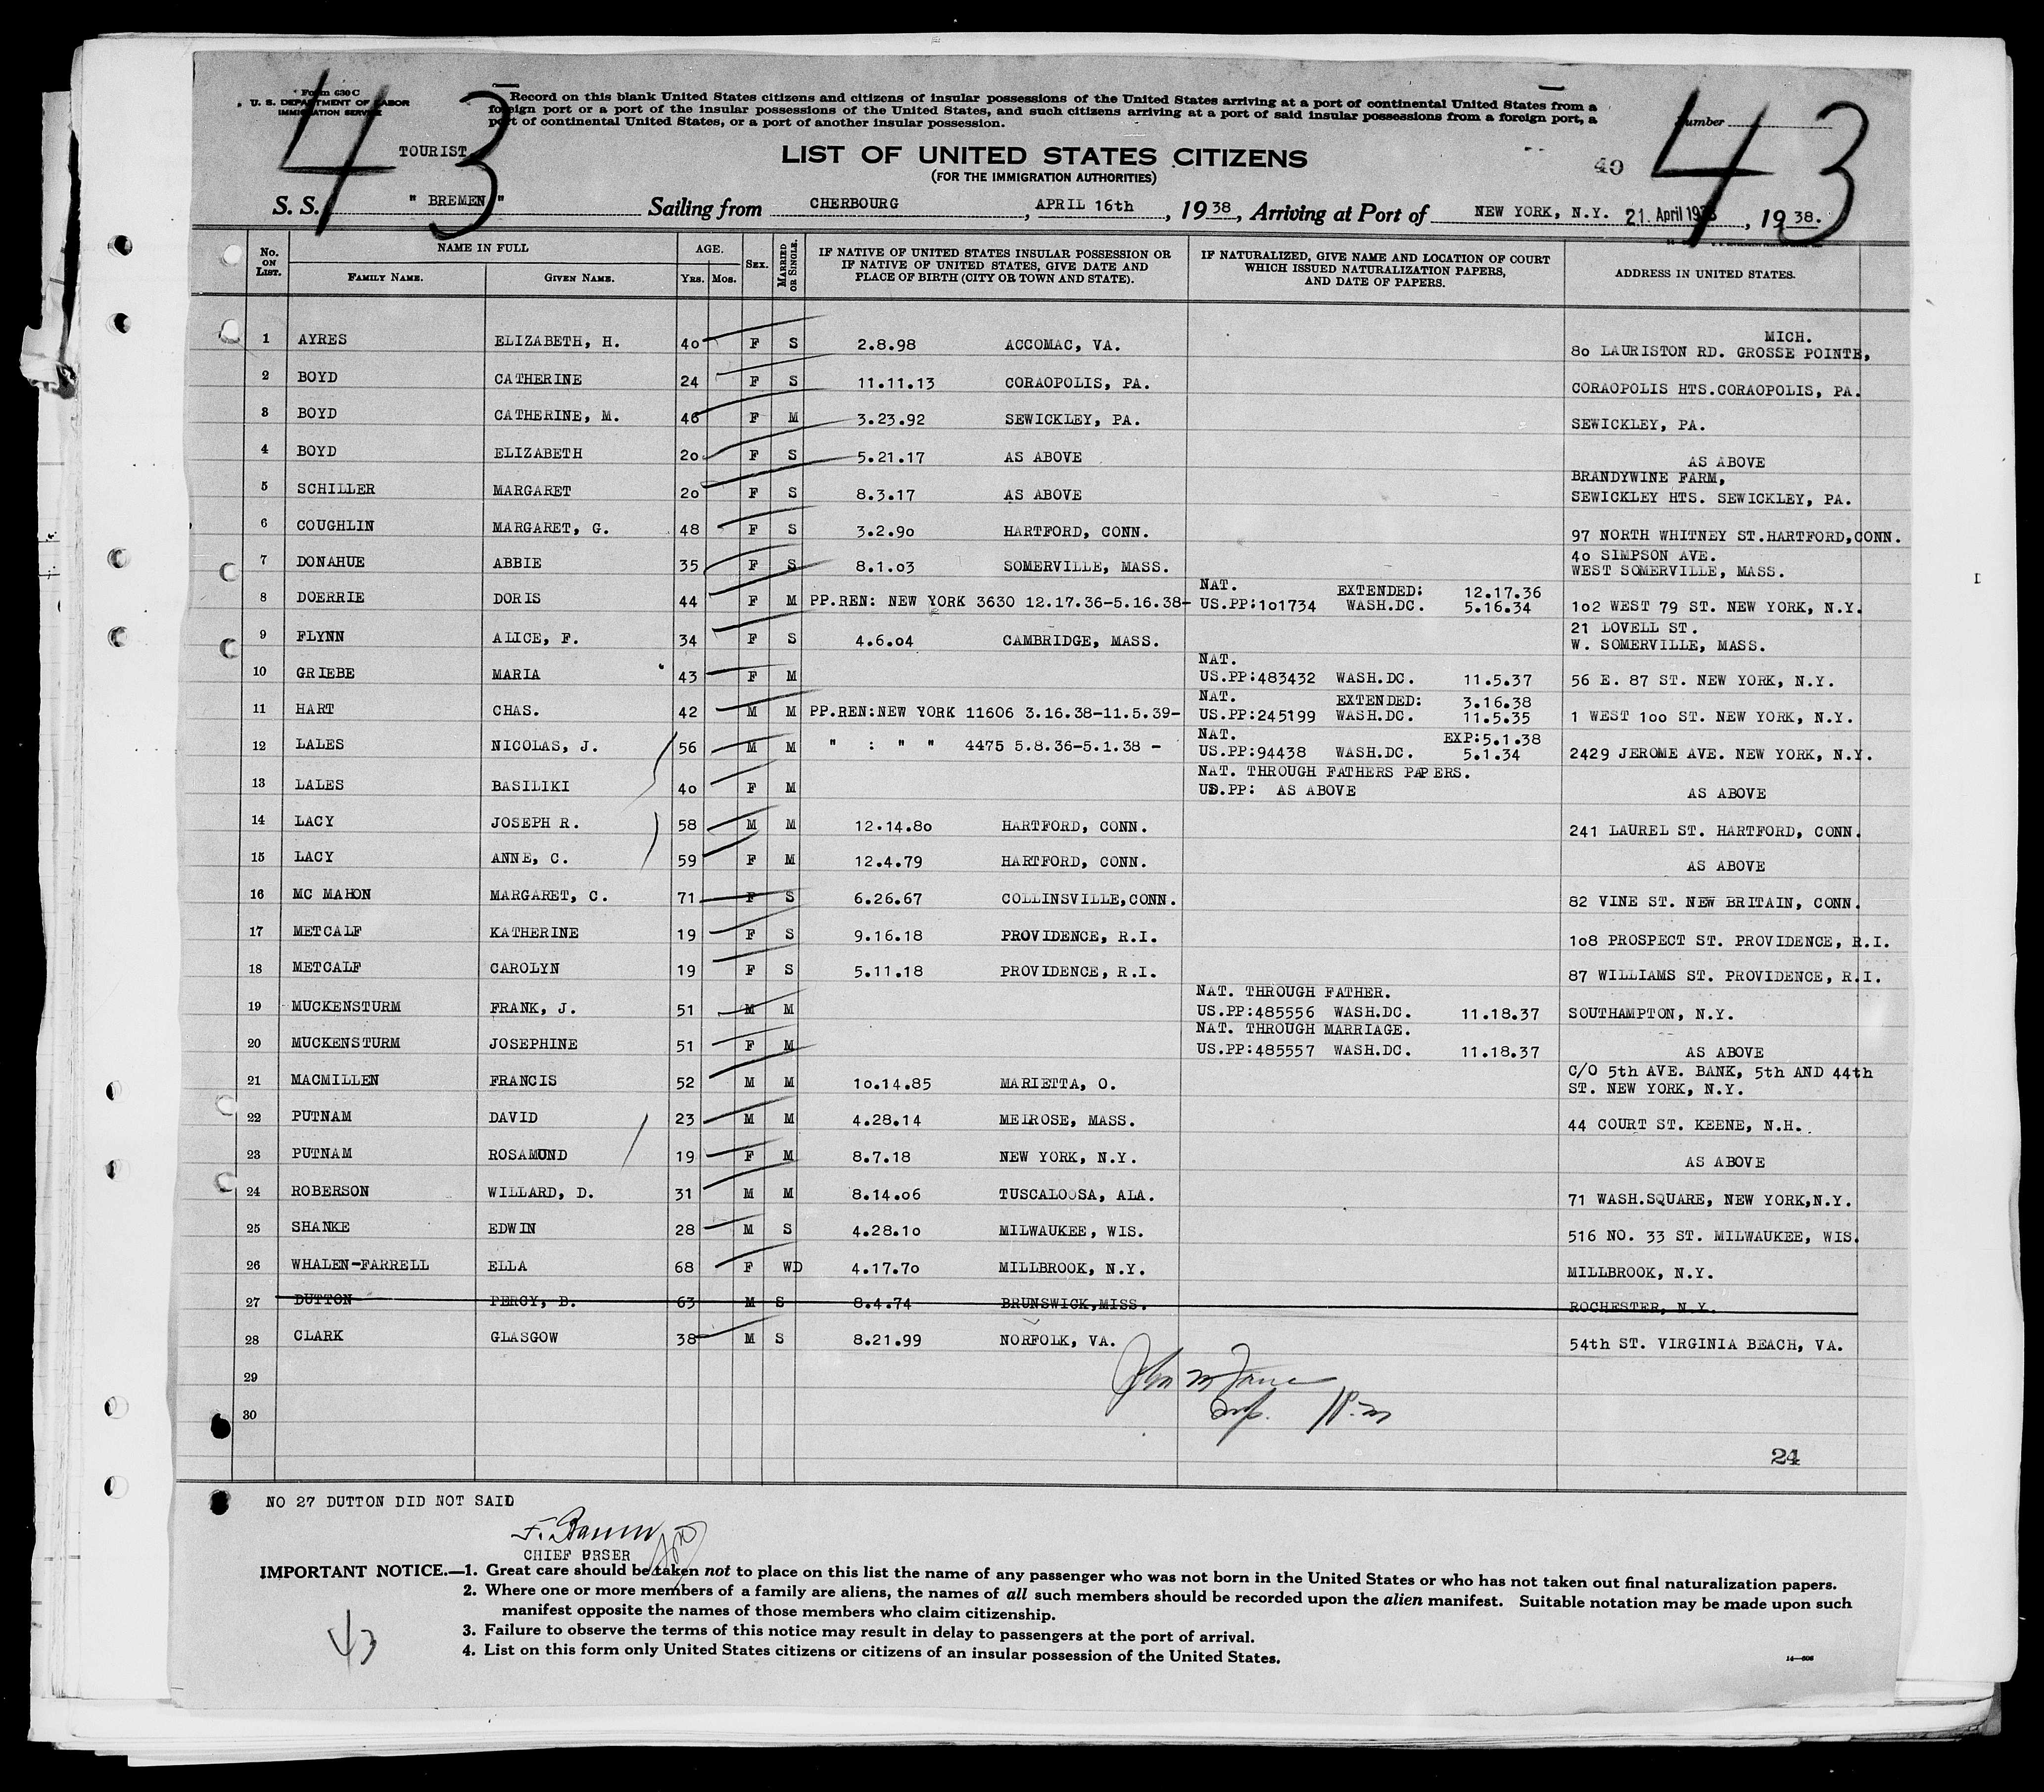 Form 630 C
U. S. DEPARTMENT OF LABOR
IMMIGRATION SERVICE
43
Record on this blank United States citizens and citizens of insular possessions of the United States arriving at a port of continental United States from a
foreign port or a port of the insular possessions of the United States, and such citizens arriving at a port of said insular possessions from a foreign port, a
port of continental United States, or a port of another insular possession.
Number
43
TOURIST
LIST OF UNITED STATES CITIZENS
(FOR THE IMMIGRATION AUTHORITIES)
40
S. S. " BREMEN " Sailing from CHERBOURG, APRIL 16th, 1938, Arriving at Port of NEW YORK, N.Y. 21. April 1938, 1938.
No. ON LIST. NAME IN FULL FAMILY NAME. GIVEN NAME. AGE. YRS. MOS. SEX. MARRIED OR SINGLE. IF NATIVE OF UNITED STATES INSULAR POSSESSION OR IF NATIVE OF UNITED STATES, GIVE DATE AND PLACE OF BIRTH (CITY OR TOWN AND STATE). IF NATURALIZED, GIVE NAME AND LOCATION OF COURT WHICH ISSUED NATURALIZATION PAPERS, AND DATE OF PAPERS. ADDRESS IN UNITED STATES.
MICH.
1 AYRES ELIZABETH, H. 40 F S 2.8.98 ACCOMAC, VA. 80 LAURISTON RD. GROSSE POINTE,
2 BOYD CATHERINE 24 F S 11.11.13 CORAOPOLIS, PA. CORAOPOLIS HTS.CORAOPOLIS, PA.
3 BOYD CATHERINE, M. 46 F M 3.23.92 SEWICKLEY, PA. SEWICKLEY, PA.
4 BOYD ELIZABETH 20 F S 5.21.17 AS ABOVE AS ABOVE
BRANDYWINE FARM,
5 SCHILLER MARGARET 20 F S 8.3.17 AS ABOVE SEWICKLEY HTS. SEWICKLEY, PA.
6 COUGHLIN MARGARET, G. 48 F S 3.2.90 HARTFORD, CONN. 97 NORTH WHITNEY ST.HARTFORD,CONN.
40 SIMPSON AVE.
7 DONAHUE ABBIE 35 F S 8.1.03 SOMERVILLE, MASS. WEST SOMERVILLE, MASS.
NAT. EXTENDED: 12.17.36
8 DOERRIE DORIS 44 F M PP.REN: NEW YORK 3630 12.17.36-5.16.38- US.PP:101734 WASH.DC. 5.16.34 102 WEST 79 ST. NEW YORK, N.Y.
21 LOVELL ST.
9 FLYNN ALICE, F. 34 F S 4.6.04 CAMBRIDGE, MASS. W. SOMERVILLE, MASS.
NAT.
10 GRIEBE MARIA 43 F M US.PP:483432 WASH.DC. 11.5.37 56 E. 87 ST. NEW YORK, N.Y.
NAT. EXTENDED: 3.16.38
11 HART CHAS. 42 M M PP.REN:NEW YORK 11606 3.16.38-11.5.39- US.PP:245199 WASH.DC. 11.5.35 1 WEST 100 ST. NEW YORK, N.Y.
NAT. EXP:5.1.38
12 LALES NICOLAS, J. 56 M M " : " " 4475 5.8.36-5.1.38 - US.PP:94438 WASH.DC. 5.1.34 2429 JEROME AVE. NEW YORK, N.Y.
NAT. THROUGH FATHERS PAPERS.
13 LALES BASILIKI 40 F M US.PP: AS ABOVE AS ABOVE
14 LACY JOSEPH R. 58 M M 12.14.80 HARTFORD, CONN. 241 LAUREL ST. HARTFORD, CONN.
15 LACY ANNE, C. 59 F M 12.4.79 HARTFORD, CONN. AS ABOVE
16 MC MAHON MARGARET, C. 71 F S 6.26.67 COLLINSVILLE,CONN. 82 VINE ST. NEW BRITAIN, CONN.
17 METCALF KATHERINE 19 F S 9.16.18 PROVIDENCE, R.I. 108 PROSPECT ST. PROVIDENCE, R.I.
18 METCALF CAROLYN 19 F S 5.11.18 PROVIDENCE, R.I. 87 WILLIAMS ST. PROVIDENCE, R.I.
NAT. THROUGH FATHER.
19 MUCKENSTURM FRANK, J. 51 M M US.PP:485556 WASH.DC. 11.18.37 SOUTHAMPTON, N.Y.
NAT. THROUGH MARRIAGE.
20 MUCKENSTURM JOSEPHINE 51 F M US.PP:485557 WASH.DC. 11.18.37 AS ABOVE
C/O 5th AVE. BANK, 5th AND 44th
21 MACMILLEN FRANCIS 52 M M 10.14.85 MARIETTA, O. ST. NEW YORK, N.Y.
22 PUTNAM DAVID 23 M M 4.28.14 MELROSE, MASS. 44 COURT ST. KEENE, N.H.
23 PUTNAM ROSAMUND 19 F M 8.7.18 NEW YORK, N.Y. AS ABOVE
24 ROBERSON WILLARD, D. 31 M M 8.14.06 TUSCALOOSA, ALA. 71 WASH.SQUARE, NEW YORK,N.Y.
25 SHANKE EDWIN 28 M S 4.28.10 MILWAUKEE, WIS. 516 NO. 33 ST. MILWAUKEE, WIS.
26 WHALEN-FARRELL ELLA 68 F WD 4.17.70 MILLBROOK, N.Y. MILLBROOK, N.Y.
27 DUTTON PERCY, B. 63 M S 8.4.74 BRUNSWICK,MISS. ROCHESTER, N.Y.
28 CLARK GLASGOW 38 M S 8.21.99 NORFOLK, VA. 54th ST. VIRGINIA BEACH, VA.
29
30
24
NO 27 DUTTON DID NOT SAIL
CHIEF PRSER
IMPORTANT NOTICE.—1. Great care should be taken not to place on this list the name of any passenger who was not born in the United States or who has not taken out final naturalization papers.
2. Where one or more members of a family are aliens, the names of all such members should be recorded upon the alien manifest. Suitable notation may be made upon such
manifest opposite the names of those members who claim citizenship.
3. Failure to observe the terms of this notice may result in delay to passengers at the port of arrival.
4. List on this form only United States citizens or citizens of an insular possession of the United States.
43